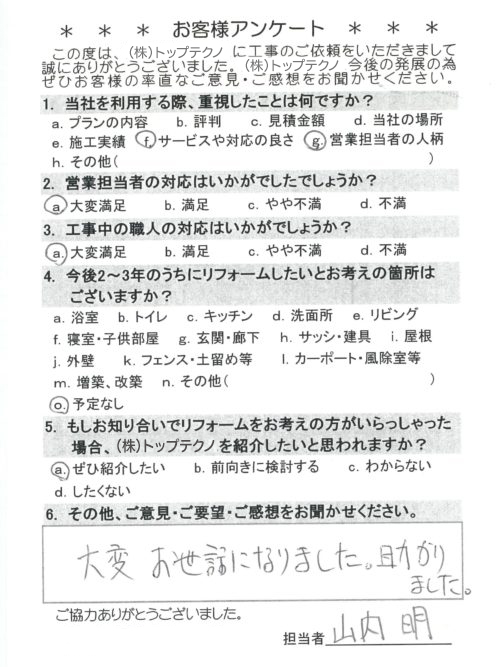 ＊ ＊ ＊ お客様アンケート ＊ ＊ ＊
この度は、(株)トップテクノ に工事のご依頼をいただきまして
誠にありがとうございました。(株)トップテクノ 今後の発展の為
ぜひお客様の率直なご意見・ご感想をお聞かせください。
1. 当社を利用する際、重視したことは何ですか？
a. プランの内容 b. 評判 c. 見積金額 d. 当社の場所
e. 施工実績 f. サービスや対応の良さ g. 営業担当者の人柄
h. その他( )
2. 営業担当者の対応はいかがでしたでしょうか？
a. 大変満足 b. 満足 c. やや不満 d. 不満
3. 工事中の職人の対応はいかがでしょうか？
a. 大変満足 b. 満足 c. やや不満 d. 不満
4. 今後2～3年のうちにリフォームしたいとお考えの箇所は
ございますか？
a. 浴室 b. トイレ c. キッチン d. 洗面所 e. リビング
f. 寝室・子供部屋 g. 玄関・廊下 h. サッシ・建具 i. 屋根
j. 外壁 k. フェンス・土留め等 l. カーポート・風除室等
m. 増築、改築 n. その他( )
o. 予定なし
5. もしお知り合いでリフォームをお考えの方がいらっしゃった
場合、(株)トップテクノ を紹介したいと思われますか？
a. ぜひ紹介したい b. 前向きに検討する c. わからない
d. したくない
6. その他、ご意見・ご要望・ご感想をお聞かせください。
大変 お世話になりました。助かり
ました。
ご協力ありがとうございました。
担当者 山内 明